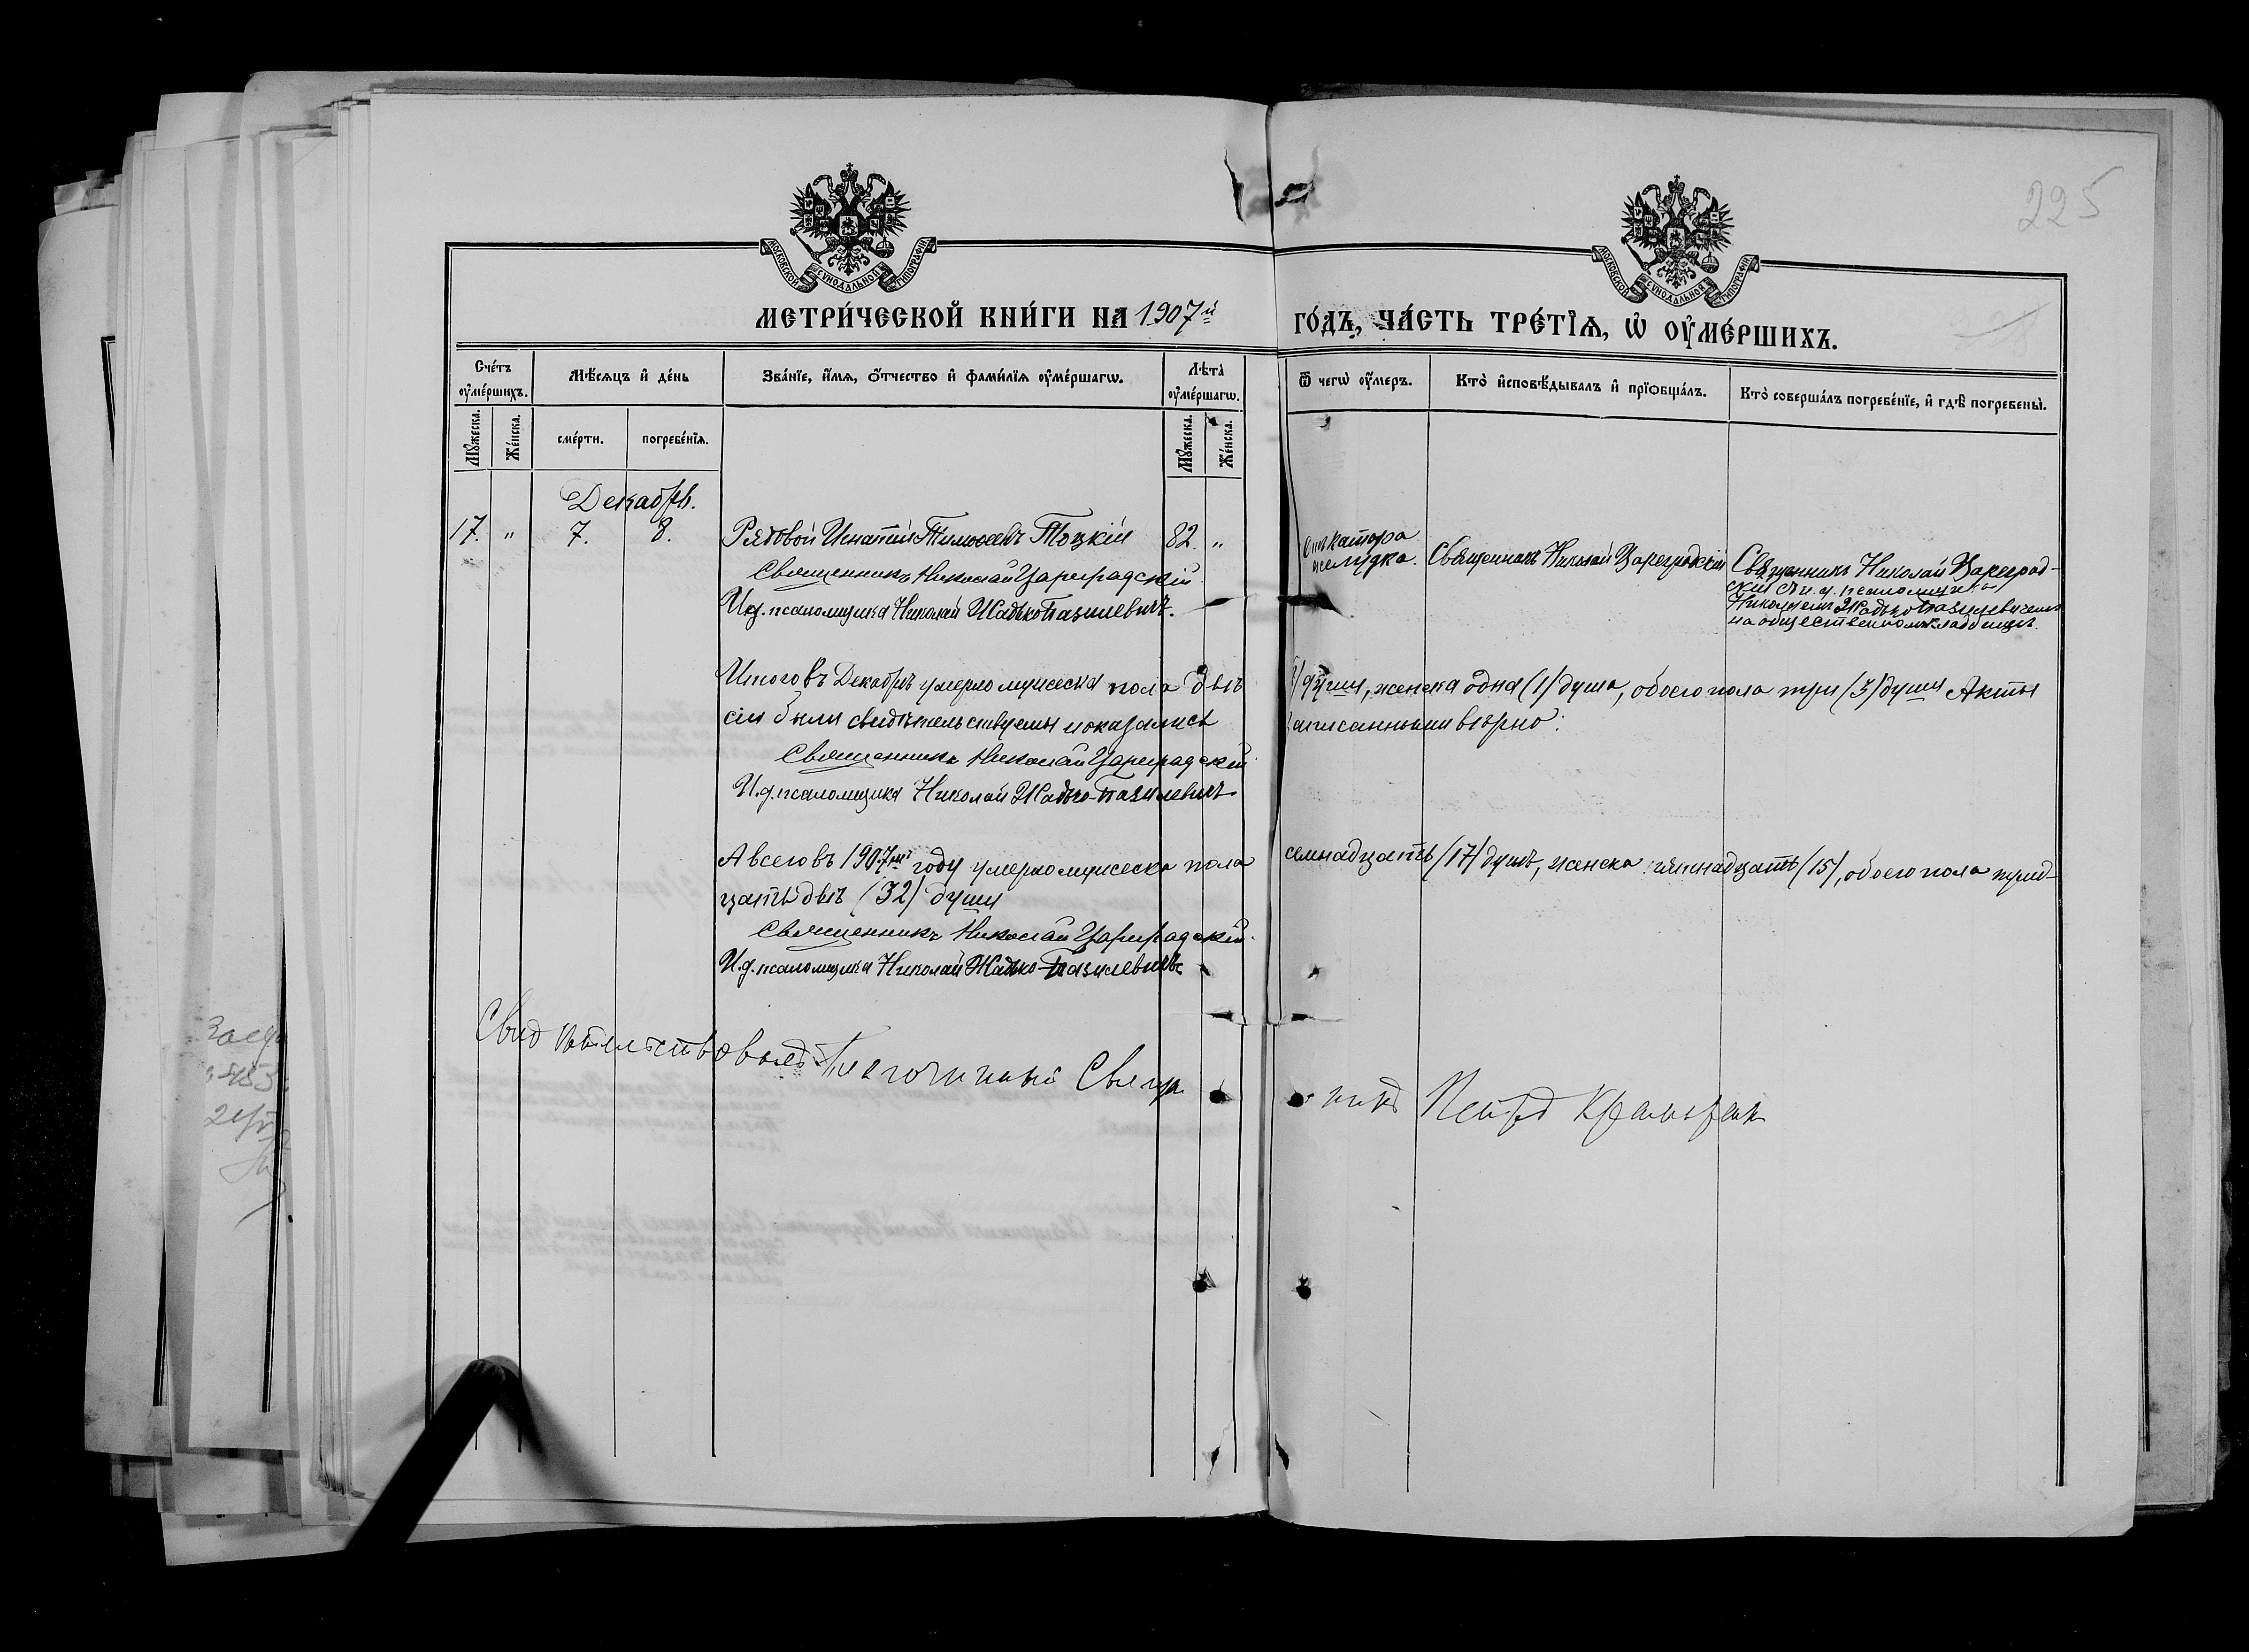 225
МОСКОВСКОЙ СѴНОДАЛЬНОЙ ТИПОГРАФІИ
МОСКОВСКОЙ СѴНОДАЛЬНОЙ ТИПОГРАФІИ
МЕТРИ́ЧЕСКОЙ КНИ́ГИ НА 1907й
ГО́ДЪ, ЧА́СТЬ ТРЕ́ТЇѦ, Ѡ҆ ОУ҆МЕ́РШИХЪ.
Сче́тъ оу҆ме́ршихъ.
Мѣ́сѧцъ и҆ де́нь
Зва́нїе, и҆́мѧ, ѻ҆́тчество и҆ фами́лїѧ оу҆ме́ршагѡ.
Лѣ́та оу҆ме́ршагѡ.
Ѿ чегѡ̀ оу҆́меръ.
Кто̀ и҆сповѣ́дывалъ и҆ прїѡбща́лъ.
Кто̀ соверша́лъ погребе́нїе, и҆ гдѣ̀ погребены̀.
Мꙋ́жеска.
Же́нска.
сме́рти.
погребе́нїѧ.
Мꙋ́жеска.
Же́нска.
Декабрь.
17. " 7. 8. Рядовой Игнатій Тимоѳеевъ Тоцкій 82. "
отъ катара
желудка.
Священникъ Николай Цареградскій
Священникъ Николай Цареград-
скій съ и. д. псаломщика
Николаемъ Жадько-Базилевичемъ
на общественномъ кладбищѣ.
Священникъ Николай Цареградскій.
И.д. псаломщика Николай Жадько-Базилевичъ.
Итого въ Декабрѣ умерло мужеска пола двѣ
/ души, женска одна (1) душа, обоего пола три (3) души Акты
сіи были свидѣтельствуемы и оказались
записанными вѣрно:
Священникъ Николай Цареградскій
И.д. псаломщика Николай Жадько-Базилевичъ
А всего въ 1907мъ году умерло мужеска пола
семнадцать (17) душъ, женска пятнадцать (15), обоего пола трид-
цать двѣ (32) души
Священникъ Николай Цареградскій.
И.д. псаломщика Николай Жадько-Базилевичъ
Свидѣтельствовалъ Благочинный Свяще
никъ Петръ